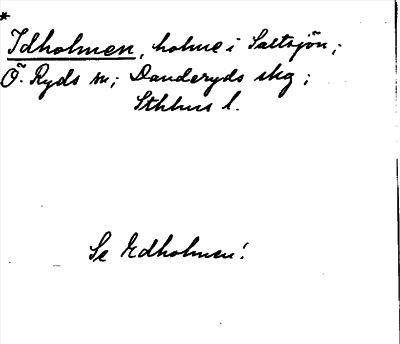 *
Idholmen, holme i Saltsjön;
Ö. Ryds sn; Danderyds skg;
Sthlms l.
Se Edholmen!